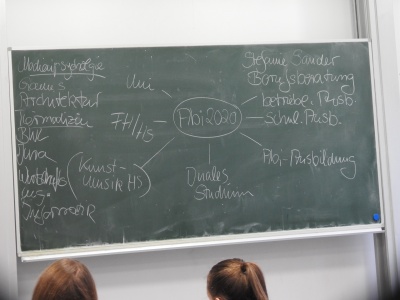 Stefanie Sander
Berufsberatung
betriebl. Ausb.
schul. Ausb.
Abi-Ausbildung
Abi 2020
Uni
FH/HS
Kunst-
Musik HS
Duales
Studium
Architektur
BWL
Jura
Informatik